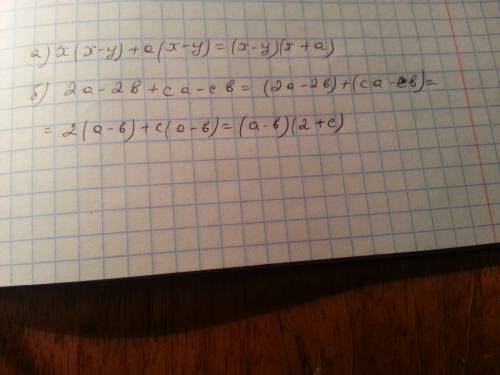 а) x(x-y)+a(x-y)=(x-y)(x+a)
б) 2a-2в+ca-cв=(2a-2в)+(ca-cв)=
=2(a-в)+c(a-в)=(a-в)(2+c)